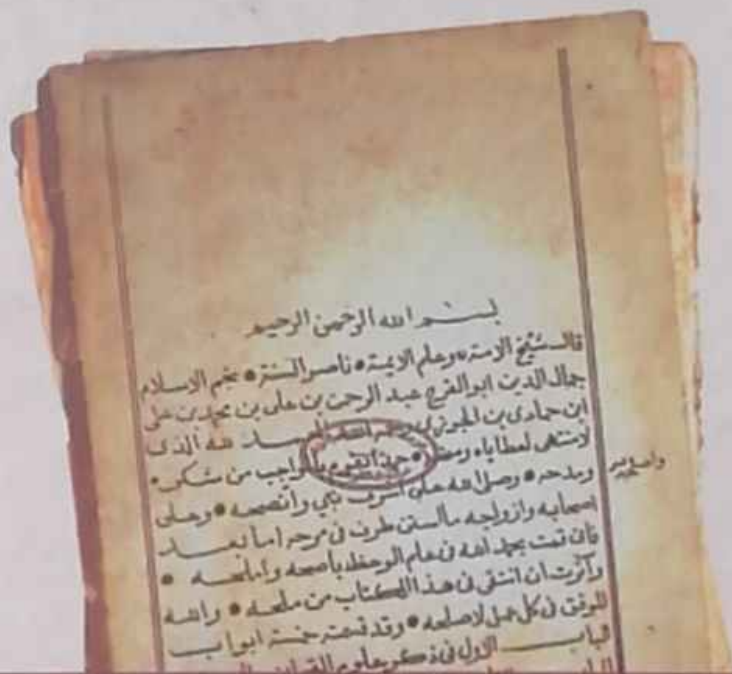 بسم الله الرحمن الرحيم
قال شيخ الامة وعلم الايمة ناصر السنة نجم الاسلام
جمال الدين ابو الفرج عبد الرحمن بن على بن محمد بن على
ابن حمادى بن الجوزى الله لله الذى
لا منتهى لعطاياه بالواجب من شكره
ومدحه وصلى الله على اشرف نبي وانصحه وعلى
اصحابه وازواجه ما استن طرف فى مرحه اما بعد
فانى قمت بحمد الله فى علم الوعظ باصحه واملحه
وآثرت ان انتقى فى هذا الكتاب من ملحه والله
الموفق فى كل عمل لاصلحه وقد قسمته خمسة ابواب
الباب الاول فى ذكر علوم القران